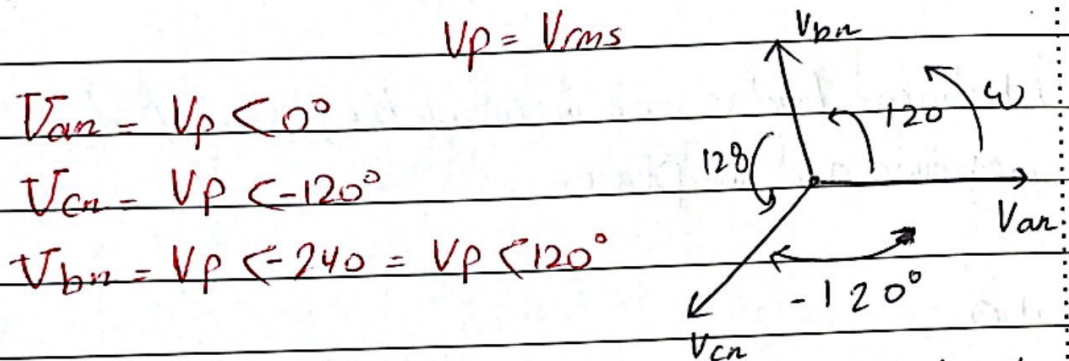 Vp = Vrms
Van = Vp <0°
Vcn = Vp <-120°
Vbn = Vp <-240 = Vp <120°
Vbn
120
ω
128
Van
-120°
Vcn